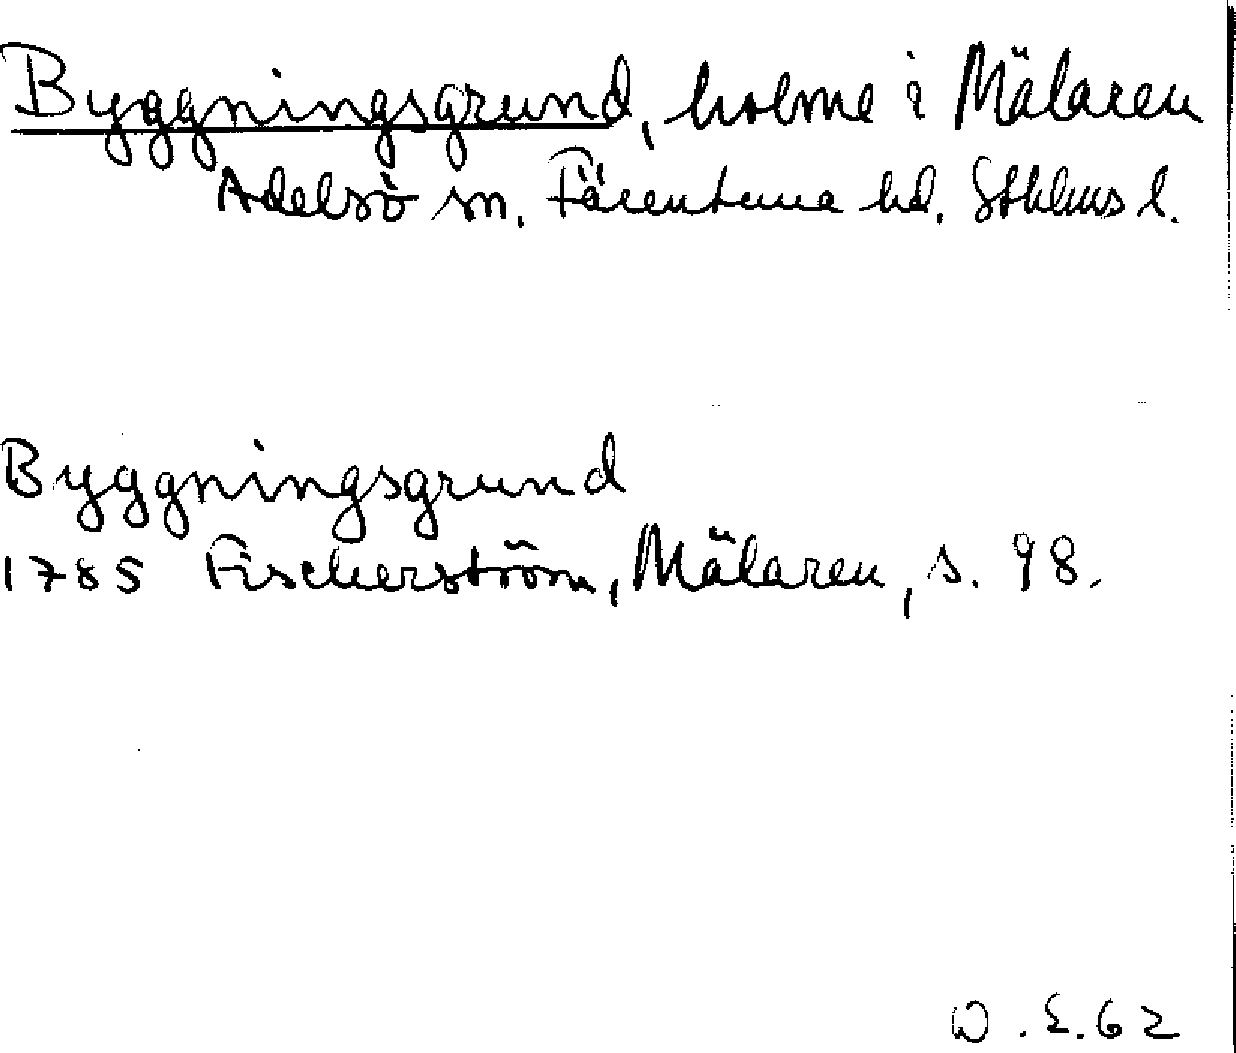 Byggningsgrund, holme i Mälaren
Adelsö sn. Färentuna hd. Sthlms l.
Byggningsgrund
1785 Fischerström, Mälaren, s. 98.
O.E.62